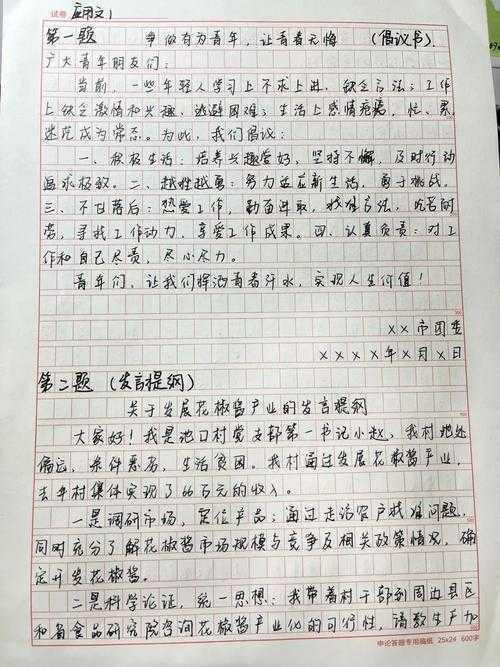 试卷 应用文1
第一题 争做有为青年，让青春无悔 （倡议书）
广大青年朋友们：
当前，一些年轻人学习上不求上进，缺乏方法；工作
上缺乏激情和兴趣、逃避困难；生活上感情疙瘩，忙、累、
迷茫成为常态。为此，我们倡议：
一、积极生活：培养兴趣爱好，坚持不懈，及时行动
追求极致。二、越挫越勇：努力适应新生活，勇于挑战。
三、不甘落后：热爱工作，勤奋进取，找准方法，
寻找工作动力，享受工作成果。四、认真负责：对工
作和自己尽责，尽心尽力。
青年们，让我们挥洒青春汗水，实现人生价值！
××市团委
××××年×月×日
第二题（发言提纲）
关于发展花椒酱产业的发言提纲
大家好！我是池口村党支部第一书记小赵，我村地处
偏远，条件恶劣，生活贫困。我村通过发展花椒酱产业，
去年村集体实现了66万元的收入。
一是调研市场，定位产品：通过走访农户找准问题，
同时充分了解花椒酱市场规模与竞争及相关政策情况，确
定开发花椒酱。
二是科学论证，统一思想：我带着村干部到周边县区
和省食品研究院咨询花椒酱产业化的可行性，请教生产加
申论答题专用稿纸 25x24 600字